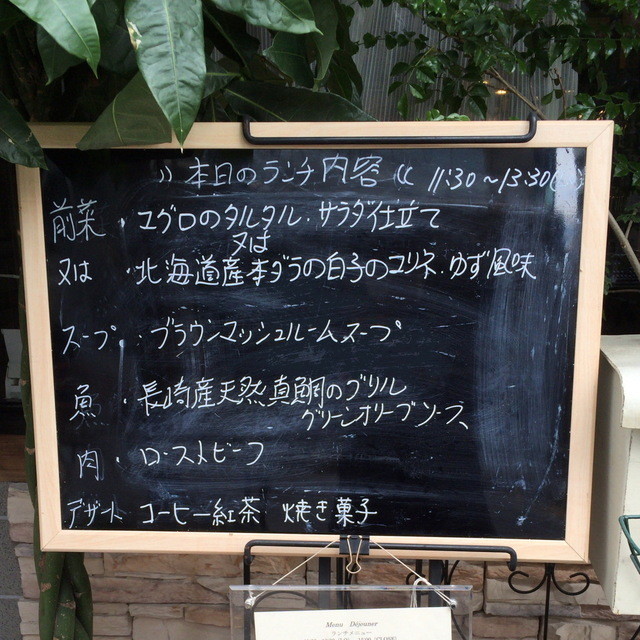 本日のランチ内容 11:30～13:30
前菜・マグロのタルタル・サラダ仕立て
又は
又は・北海道産本ダラの白子のムニエル、ゆず風味
スープ・ブラウンマッシュルームスープ
魚・長崎産天然真鯛のグリル
グリーンオリーブソース
肉・ローストビーフ
デザート コーヒー紅茶 焼き菓子
Menu Déjeuner
ランチメニュー